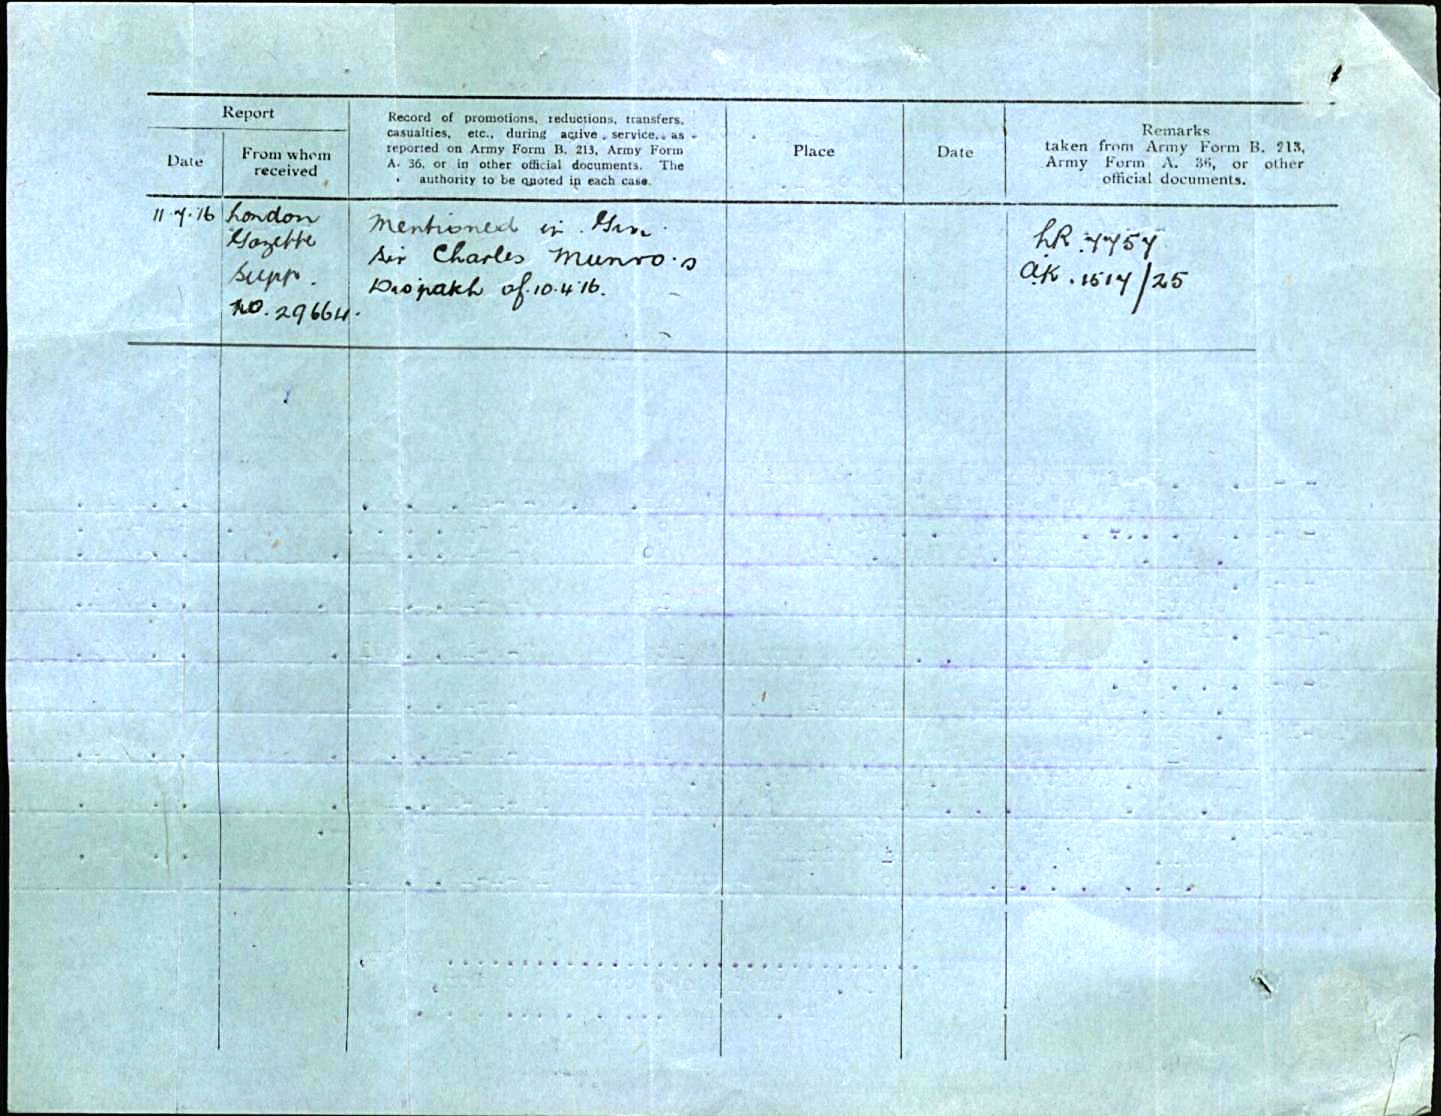 Report
Date
From whom
received
Record of promotions, reductions, transfers,
casualties, etc., during active service, as
reported on Army Form B. 213, Army Form
A. 36, or in other official documents. The
authority to be quoted in each case.
Place
Date
Remarks
taken from Army Form B. 213,
Army Form A. 36, or other
official documents.
11.7.16
London
Gazette
Supp.
No. 29664.
Mentioned in Gen.
Sir Charles Munro's
Dispatch of 10.4.16.
7757
AK. 1517/25